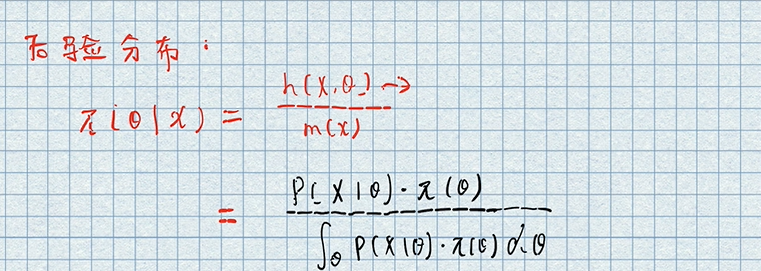 后验分布:
π(θ|x) = h(x,θ) → / m(x)
= P(x|θ)·π(θ) / ∫θ P(x|θ)·π(θ) dθ